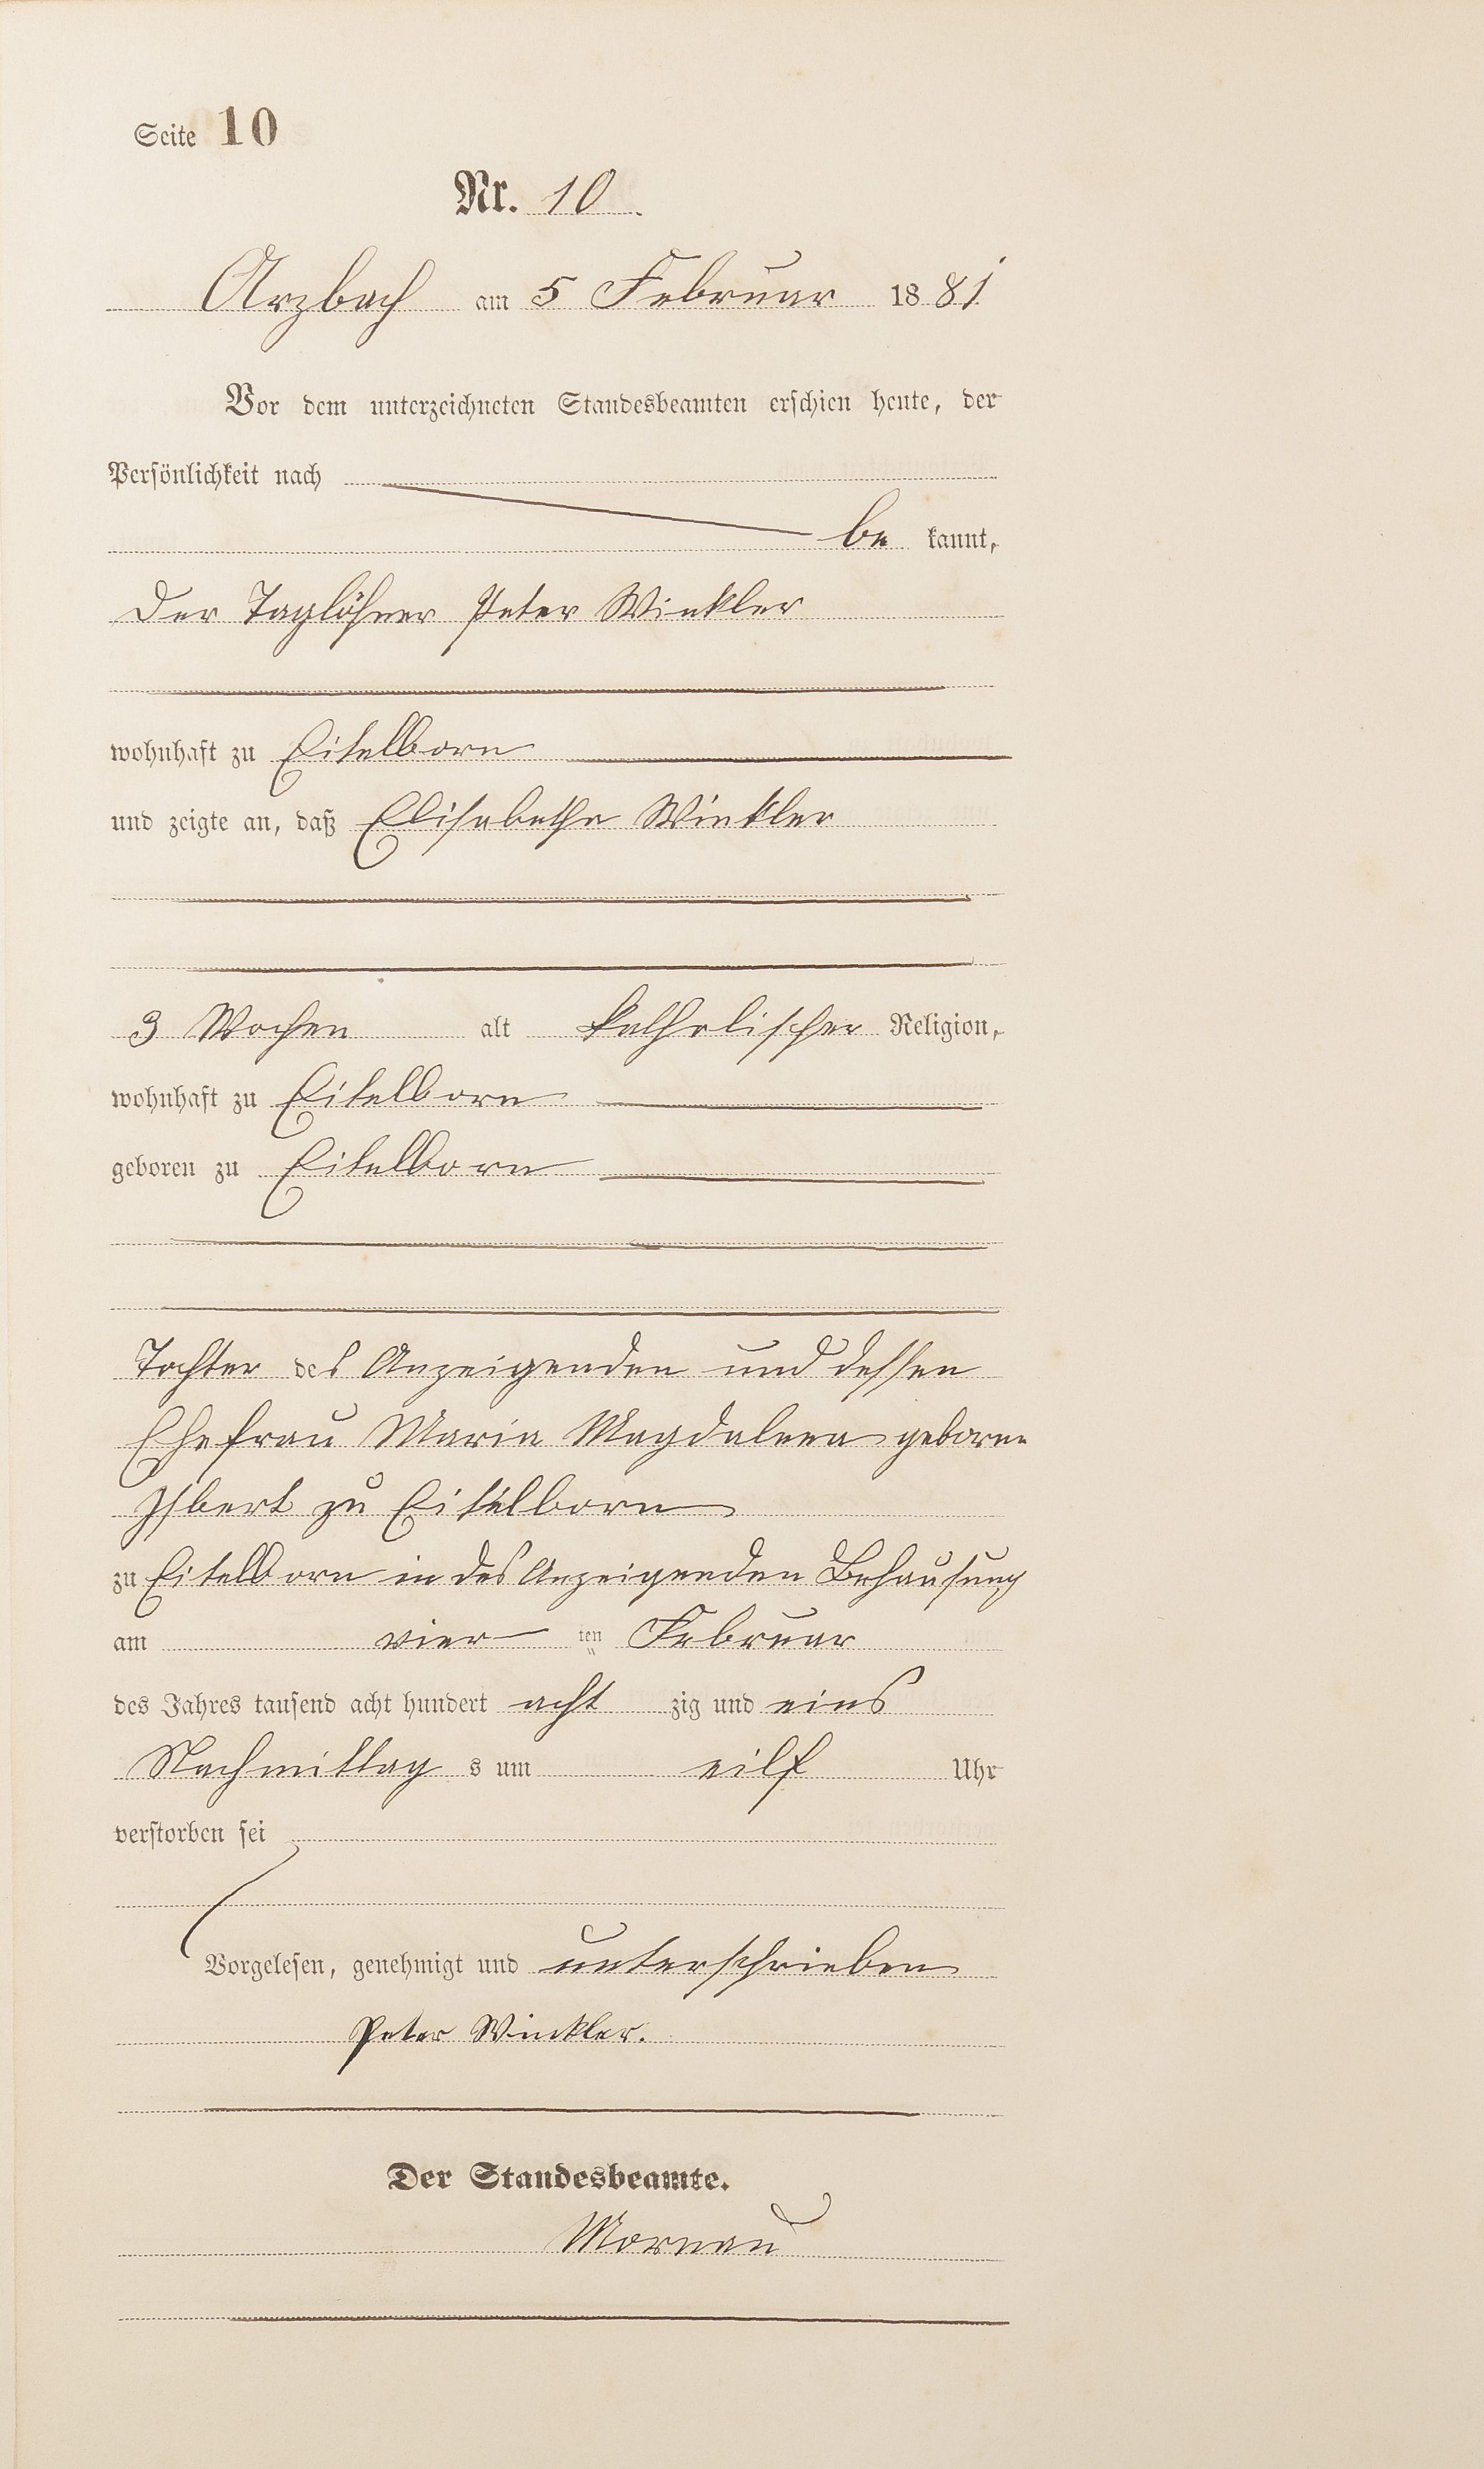 Seite 10
Nr. 10
Arzbach am 5 Februar 1881
Vor dem unterzeichneten Standesbeamten erschien heute, der
Persönlichkeit nach
be kannt,
Der Taglöhner Peter Winkler
wohnhaft zu Eitelborn
und zeigte an, daß Elisabetha Winkler
3 Wochen alt katholischer Religion,
wohnhaft zu Eitelborn
geboren zu Eitelborn
Tochter des Anzeigenden und dessen
Ehefrau Maria Magdalena geborne
Isbert zu Eitelborn
zu Eitelborn in des Anzeigenden Behausung
am vier ten Februar
des Jahres tausend acht hundert acht zig und eins
Nachmittag s um eilf Uhr
verstorben sei
Vorgelesen, genehmigt und unterschrieben
Peter Winkler.
Der Standesbeamte.
Mornau